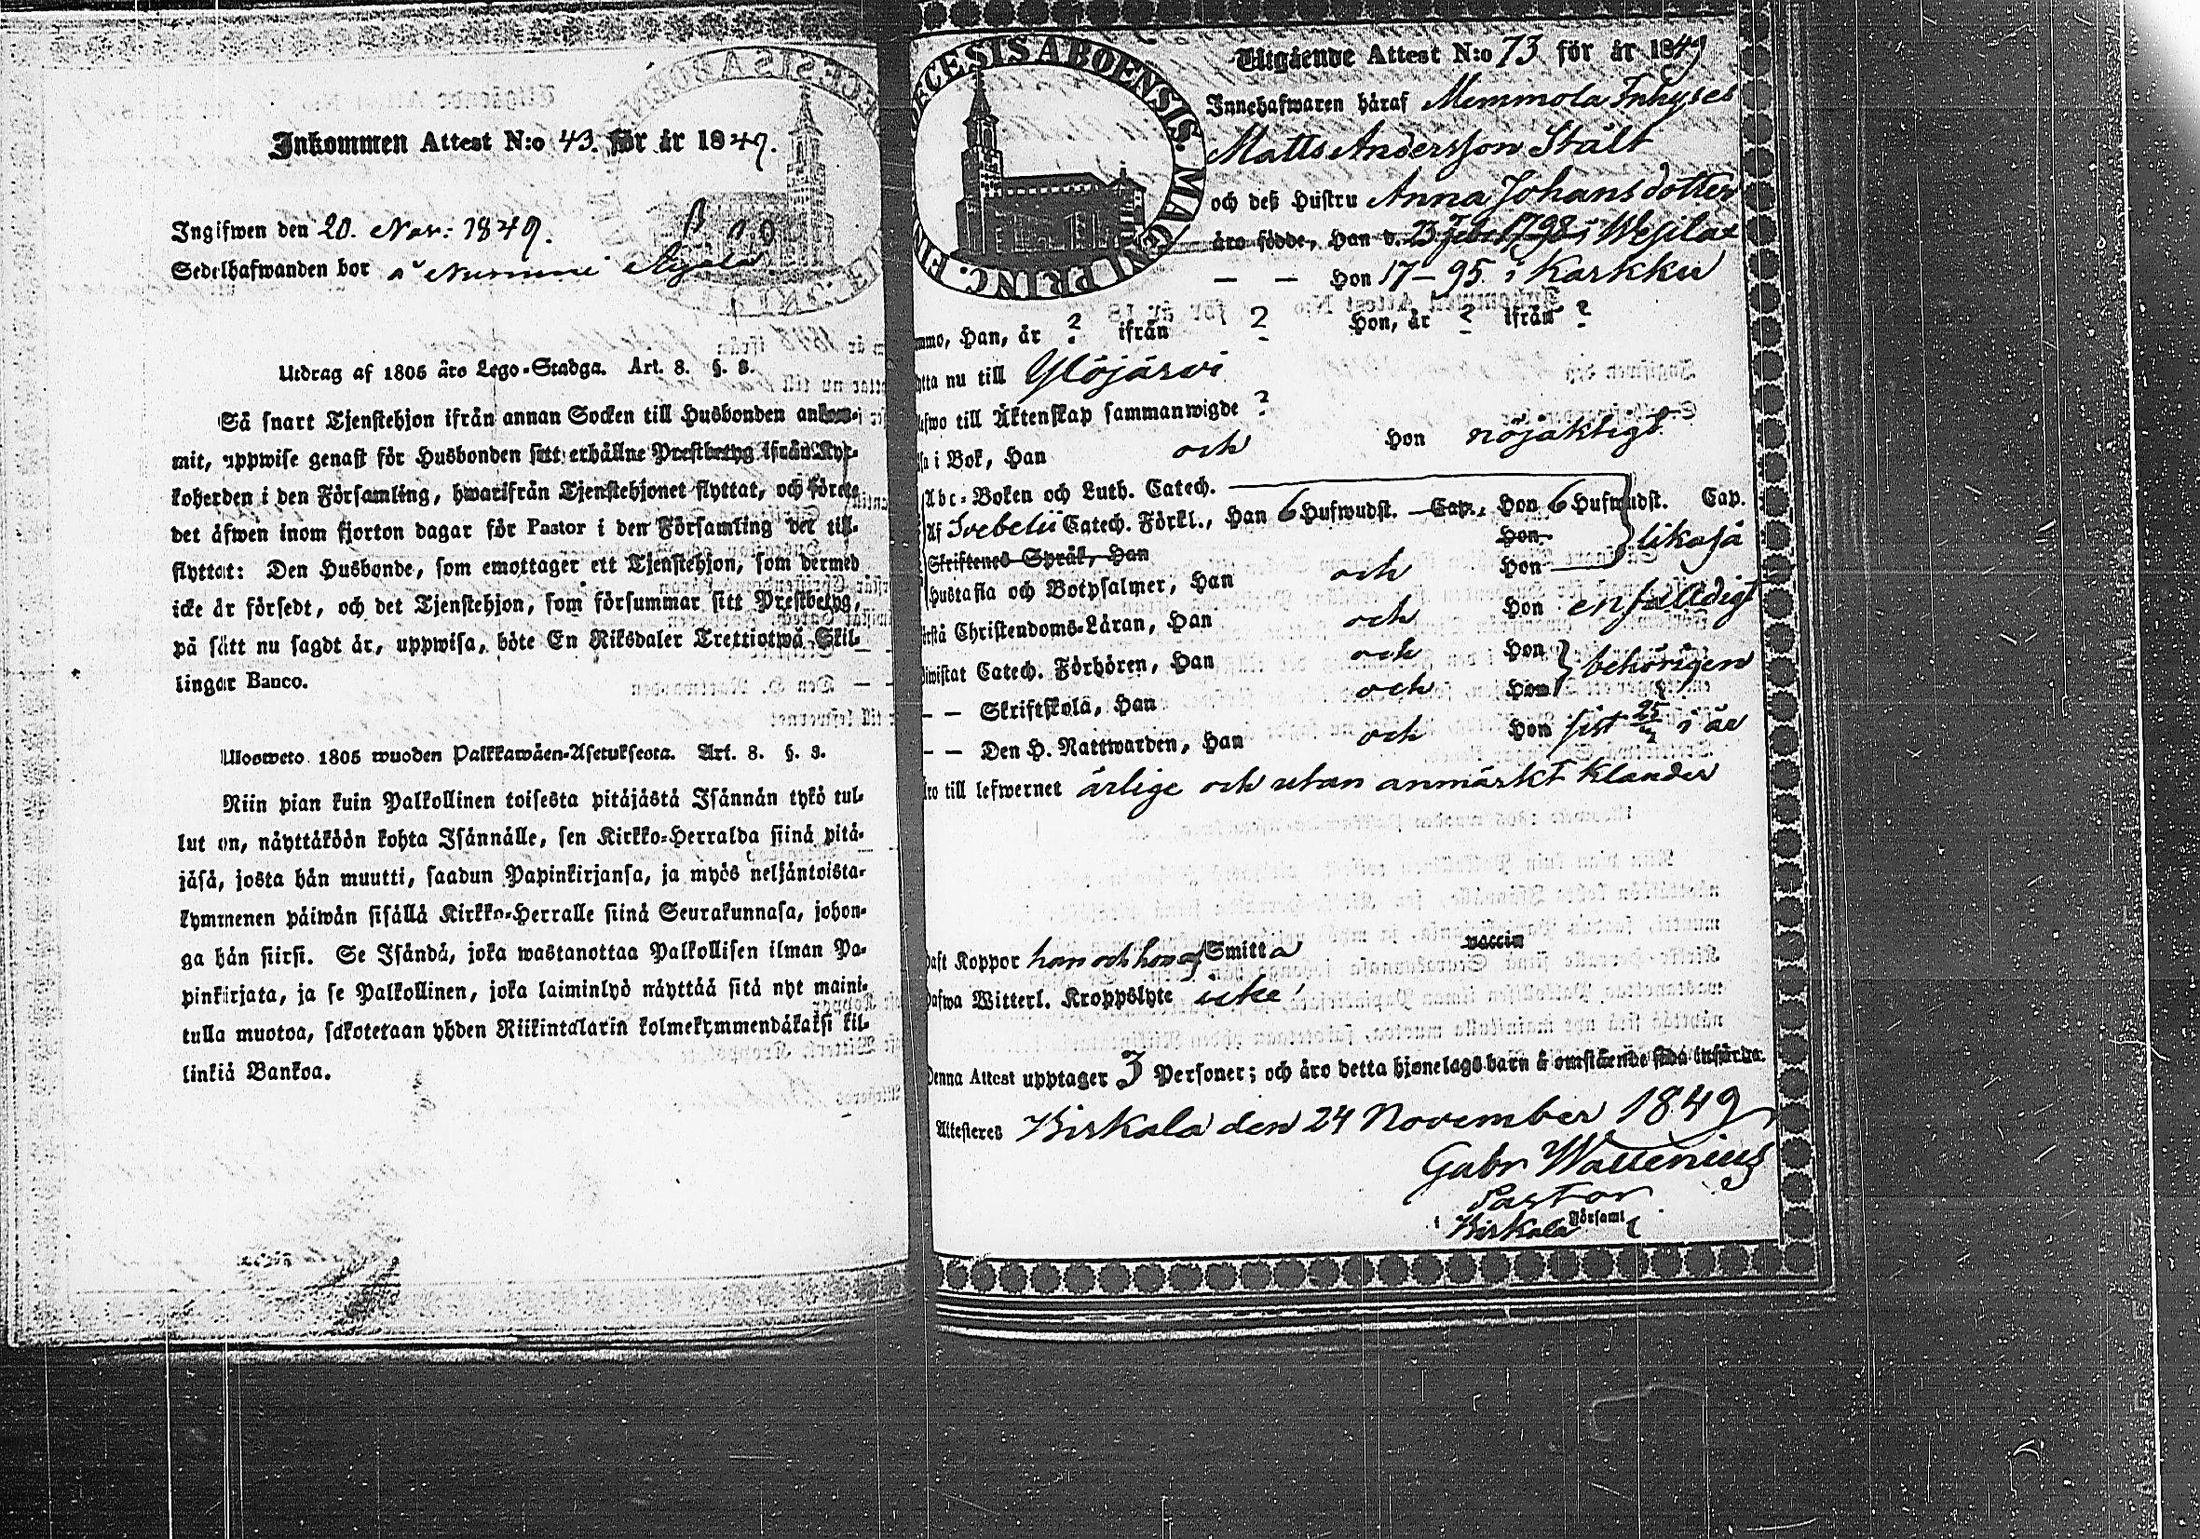 Inkommen Attest N:o 43. för år 1849.
Ingifwen den 20. Nov: 1849.
Sedelhafwanden bor å Nummi
Utdrag af 1805 års Lego-Stadga. Art. 8. §. 3.
Så snart Tjenstehjon ifrån annan Socken till Husbonden ankom-
mit, uppwise genast för Husbonden sitt erhållne Prestbetyg ifrån Kyr-
koherden i den Församling, hwarifrån Tjenstehjonet flyttat, och förete
det äfwen inom fjorton dagar för Pastor i den Församling det till-
flyttat: Den Husbonde, som emottager ett Tjenstehjon, som dermed
icke är försedt, och det Tjenstehjon, som försummar sitt Prestbetyg,
på sätt nu sagdt är, uppwisa, böte En Riksdaler Trettiotwå Skil-
lingar Banco.
Ulosweto 1805 wuoden Palkkawäen-Asetuksesta. Art. 8. §. 3.
Niin pian kuin Palkollinen toisesta pitäjästä Isännän tykö tul-
lut on, näyttäköön kohta Isännälle, sen Kirkko-Herralda siinä pitä-
jäsä, josta hän muutti, saadun Papinkirjansa, ja myös neljäntoista-
kymmenen päiwän sisällä Kirkko-Herralle siinä Seurakunnasa, johon-
ga hän siirsi. Se Isändä, joka wastanottaa Palkollisen ilman Pa-
pinkirjata, ja se Palkollinen, joka laiminlyö näyttää sitä nyt maini-
tulla muotoa, sakotetaan yhden Riikintalarin kolmekymmendäkaksi kil-
linkiä Bankoa.
DIOECESIS ABOENSIS. MAGNI PRINC. FIN
Utgående Attest N:o 73 för år 1849
Innehafwaren häraf Memmola Inhyses
Matts Andersson Stält
och deß Hustru Anna Johansdotter
äro födde, Han d. 23 Febr 1798 i Wesilax
— — Hon 17—95 i Karkku
mmo, Han, år ? ifrån ? Hon, år ? ifrån ?
otta nu till Ylöjärwi
efwo till Äktenskap sammanwigde ?
sa i Bok, Han och Hon nöjaktigt
Abc-Boken och Luth. Catech.
Af Svebelii Catech. Förkl., Han 6 Hufwudst. Cap., Hon 6 Hufwudst. Cap.
Skriftenes Språk, Han Hon likaså
Hustafla och Botpsalmer, Han och Hon
örstå Christendoms-Läran, Han och Hon enfalldigt
biwistat Catech. Förhören, Han och Hon behörigen
— — Skriftskola, Han och Hon
— — Den H. Nattwarden, Han och Hon sist 25 i år
äro till lefwernet ärlige och utan anmärkt klander
haft Koppor han och hon af Smitta vaccin
hafwa Witterl. Kroppslyte icke
Denna Attest upptager 3 Personer; och äro detta hjonelags barn å omstående sida införda.
Attesteres Birkala den 24 November 1849
Gabr Wallenius
Pastor
i Birkala Församl